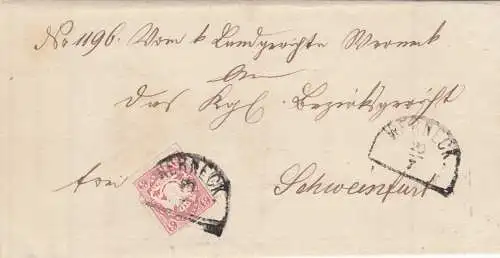 No 1196. Vom k Landgerichte Werneck
An
das Kgl. Bezirksgericht
WERNECK
20
7
frei
WERNECK
Schweinfurt